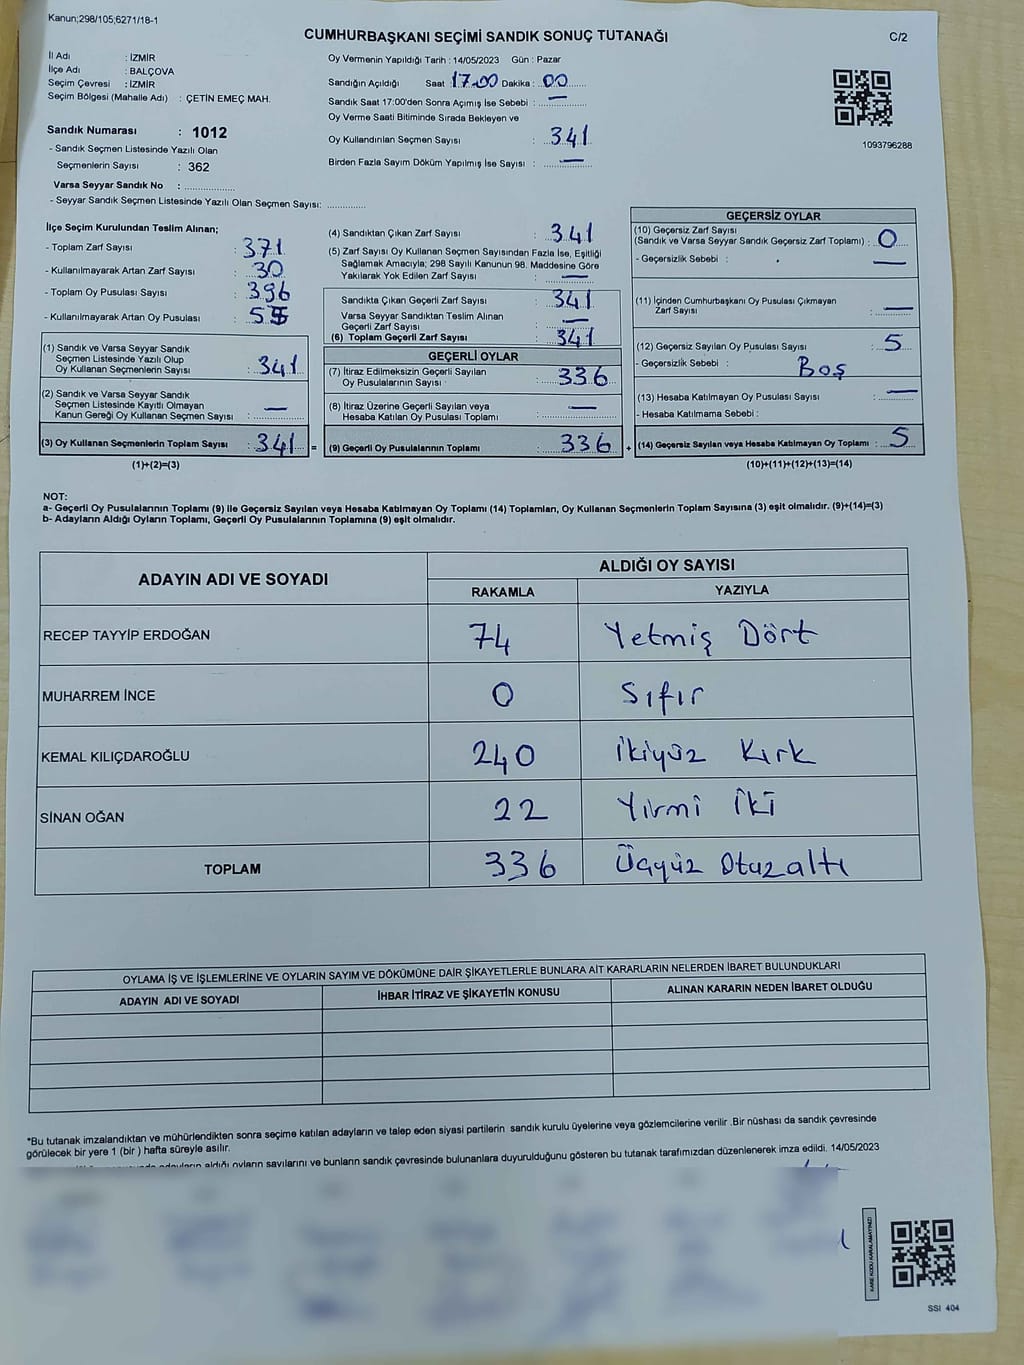 Kanun;298/105;6271/18-1
CUMHURBAŞKANI SEÇİMİ SANDIK SONUÇ TUTANAĞI
C/2
İl Adı : İZMİR
İlçe Adı : BALÇOVA
Seçim Çevresi : İZMİR
Seçim Bölgesi (Mahalle Adı) : ÇETİN EMEÇ MAH.
Sandık Numarası : 1012
- Sandık Seçmen Listesinde Yazılı Olan
Seçmenlerin Sayısı : 362
Varsa Seyyar Sandık No : ..................
- Seyyar Sandık Seçmen Listesinde Yazılı Olan Seçmen Sayısı: .............
Oy Vermenin Yapıldığı Tarih : 14/05/2023 Gün : Pazar
Sandığın Açıldığı Saat 17.00 Dakika : 00
Sandık Saat 17:00'den Sonra Açımış İse Sebebi : —
Oy Verme Saati Bitiminde Sırada Bekleyen ve
Oy Kullandırılan Seçmen Sayısı : 341
Birden Fazla Sayım Döküm Yapılmış İse Sayısı : —
1093796288
İlçe Seçim Kurulundan Teslim Alınan;
- Toplam Zarf Sayısı : 371
- Kullanılmayarak Artan Zarf Sayısı : 30
- Toplam Oy Pusulası Sayısı : 396
- Kullanılmayarak Artan Oy Pusulası : 55
(1) Sandık ve Varsa Seyyar Sandık
Seçmen Listesinde Yazılı Olup
Oy Kullanan Seçmenlerin Sayısı : 341
(2) Sandık ve Varsa Seyyar Sandık
Seçmen Listesinde Kayıtlı Olmayan
Kanun Gereği Oy Kullanan Seçmen Sayısı : —
(3) Oy Kullanan Seçmenlerin Toplam Sayısı : 341 =
(1)+(2)=(3)
(4) Sandıktan Çıkan Zarf Sayısı : 341
(5) Zarf Sayısı Oy Kullanan Seçmen Sayısından Fazla İse, Eşitliği
Sağlamak Amacıyla; 298 Sayılı Kanunun 98. Maddesine Göre
Yakılarak Yok Edilen Zarf Sayısı : —
Sandıkta Çıkan Geçerli Zarf Sayısı : 341
Varsa Seyyar Sandıktan Teslim Alınan
Geçerli Zarf Sayısı : —
(6) Toplam Geçerli Zarf Sayısı : 341
GEÇERLİ OYLAR
(7) İtiraz Edilmeksizin Geçerli Sayılan
Oy Pusulalarının Sayısı : 336
(8) İtiraz Üzerine Geçerli Sayılan veya
Hesaba Katılan Oy Pusulası Toplamı : —
(9) Geçerli Oy Pusulalarının Toplamı : 336 +
GEÇERSİZ OYLAR
(10) Geçersiz Zarf Sayısı
(Sandık ve Varsa Seyyar Sandık Geçersiz Zarf Toplamı) : 0
- Geçersizlik Sebebi : —
(11) İçinden Cumhurbaşkanı Oy Pusulası Çıkmayan
Zarf Sayısı : —
(12) Geçersiz Sayılan Oy Pusulası Sayısı : 5
- Geçersizlik Sebebi : Boş
(13) Hesaba Katılmayan Oy Pusulası Sayısı : —
- Hesaba Katılmama Sebebi :
(14) Geçersiz Sayılan veya Hesaba Katılmayan Oy Toplamı : 5
(10)+(11)+(12)+(13)=(14)
NOT:
a- Geçerli Oy Pusulalarının Toplamı (9) ile Geçersiz Sayılan veya Hesaba Katılmayan Oy Toplamı (14) Toplamları, Oy Kullanan Seçmenlerin Toplam Sayısına (3) eşit olmalıdır. (9)+(14)=(3)
b- Adayların Aldığı Oyların Toplamı, Geçerli Oy Pusulalarının Toplamına (9) eşit olmalıdır.
ADAYIN ADI VE SOYADI
ALDIĞI OY SAYISI
RAKAMLA YAZIYLA
RECEP TAYYİP ERDOĞAN 74 Yetmiş Dört
MUHARREM İNCE 0 Sıfır
KEMAL KILIÇDAROĞLU 240 İkiyüz Kırk
SİNAN OĞAN 22 Yirmi İki
TOPLAM 336 Üçyüz Otuzaltı
OYLAMA İŞ VE İŞLEMLERİNE VE OYLARIN SAYIM VE DÖKÜMÜNE DAİR ŞİKAYETLERLE BUNLARA AİT KARARLARIN NELERDEN İBARET BULUNDUKLARI
ADAYIN ADI VE SOYADI
İHBAR İTİRAZ VE ŞİKAYETİN KONUSU
ALINAN KARARIN NEDEN İBARET OLDUĞU
*Bu tutanak imzalandıktan ve mühürlendikten sonra seçime katılan adayların ve talep eden siyasi partilerin sandık kurulu üyelerine veya gözlemcilerine verilir .Bir nüshası da sandık çevresinde
görülecek bir yere 1 (bir ) hafta süreyle asılır.
adayların aldığı oyların sayılarını ve bunların sandık çevresinde bulunanlara duyurulduğunu gösteren bu tutanak tarafımızdan düzenlenerek imza edildi. 14/05/2023
KARE KODU KARALAMAYINIZ!
SSI 404